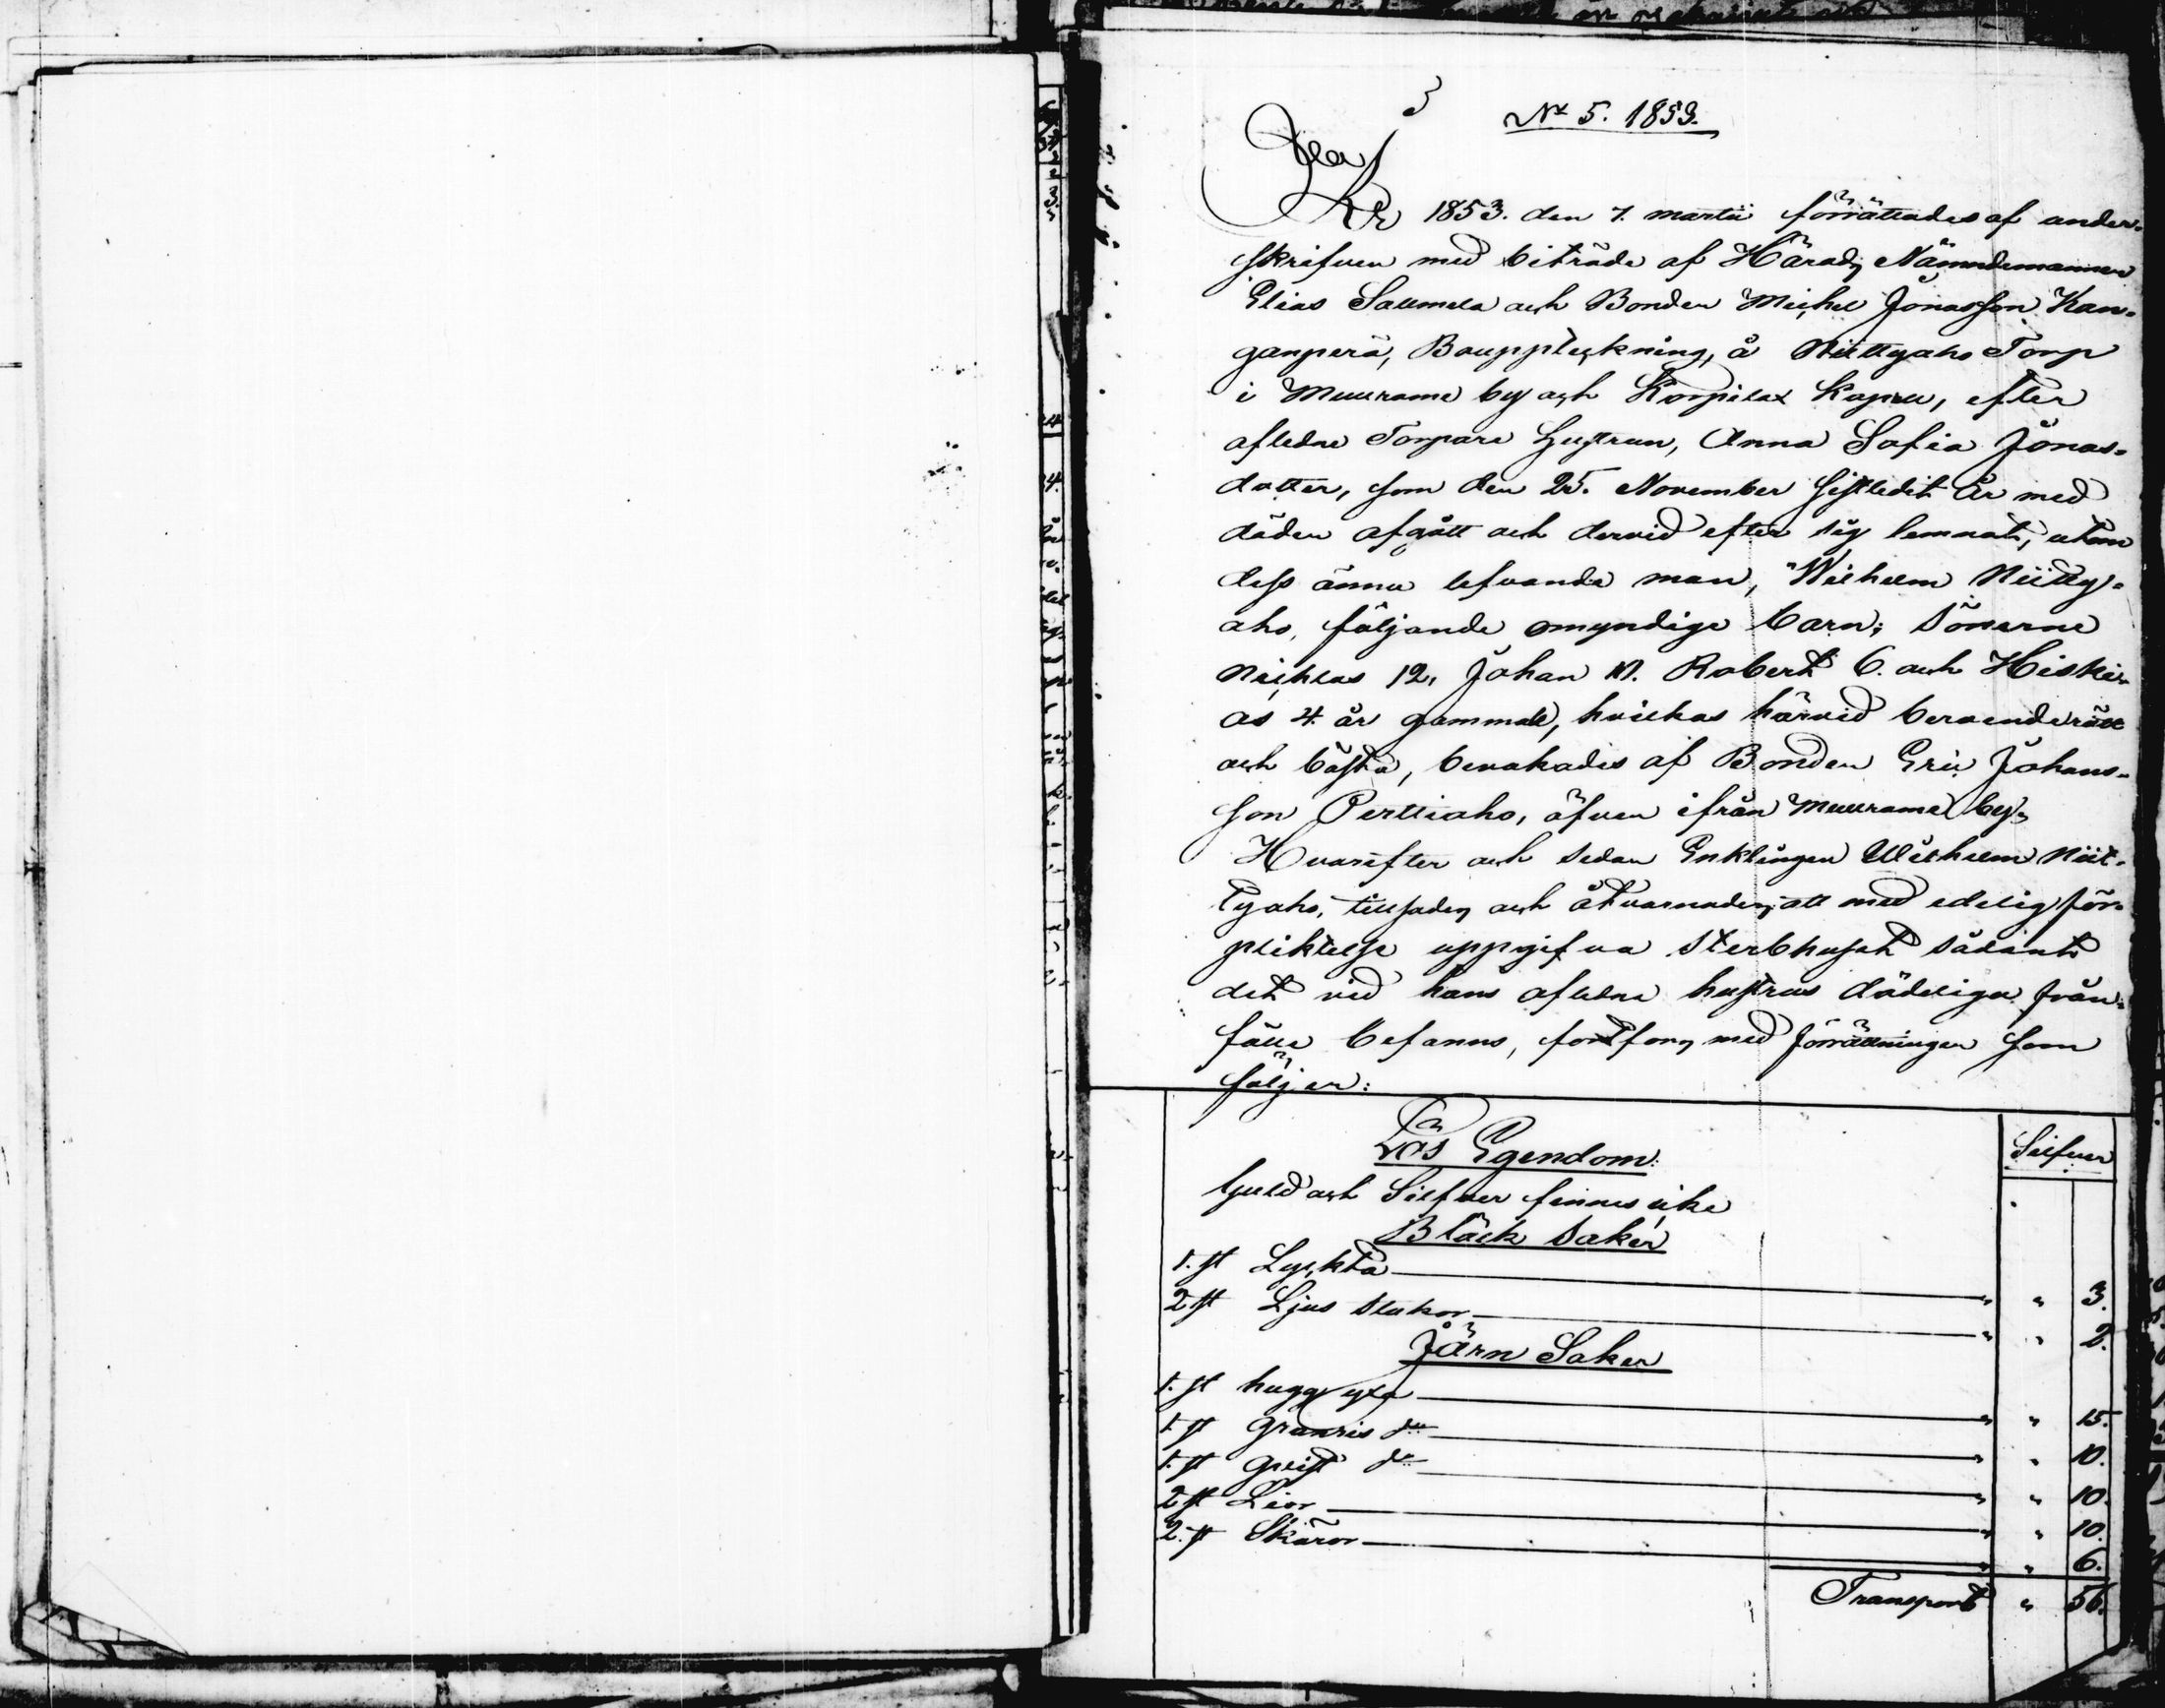 3
No 5. 1853.
År 1853. den 7. martii förrättades af under-
skrifven med biträde af Härads Nämndemannen
Elias Salmela och Bonden Michel Jonasson Kan-
ganperä, Bouppteckning, å Niittyaho Torp
i Muurame by och Korpilax Kapell, efter
aflidne Torpare Hustrun, Anna Sofia Jonas-
dotter, som den 25. November sistledit år med
döden afgått och dervid efter sig lemnat, utom
dess ännu lefvande man, Wilhelm Niitty-
aho, följande omyndige barn; Sönerne
Nichlas 12, Johan 10. Robert 6. och Hiski-
as 4. år gammal, hvilkas härvid beroende rätt
och bästa, bevakades af Bonden Eric Johans-
son Perttiaho, äfven ifrån Muurame by;
Hvarefter och sedan Enklingen Wilhelm Niit-
tyaho, tillsades och åtvarnades, att med edelig för-
pliktelse uppgifva Sterbhuset sådant
det vid hans aflidna hustrus dödeliga från-
fälle befanns, fortfors med förrättningen som
följer:
Lös Egendom: Silfver
Guld och Silfver finnes icke
Bläck Saker
1. st Lyckta " " 3.
2 st Ljus stakar " " 2.
Järn Saker
1. st hugg yxa " " 15.
1. st Granris do " " 10.
1. st do " " 10.
2 st Liar " " 10.
2. st Skäror " " 6.
Transport " 56.